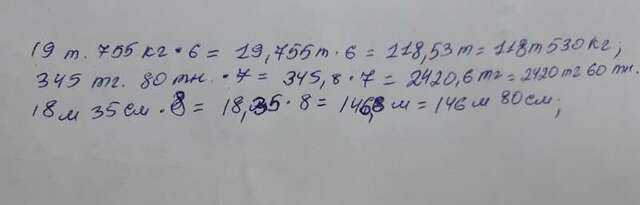 19 т. 755 кг · 6 = 19,755т · 6 = 118,53т = 118т 530кг;
345 тг. 80 тн. · 7 = 345,8 · 7 = 2420,6тг = 2420 тг 60 тн.
18м 35см · 8 = 18,35 · 8 = 146,8 м = 146м 80см;